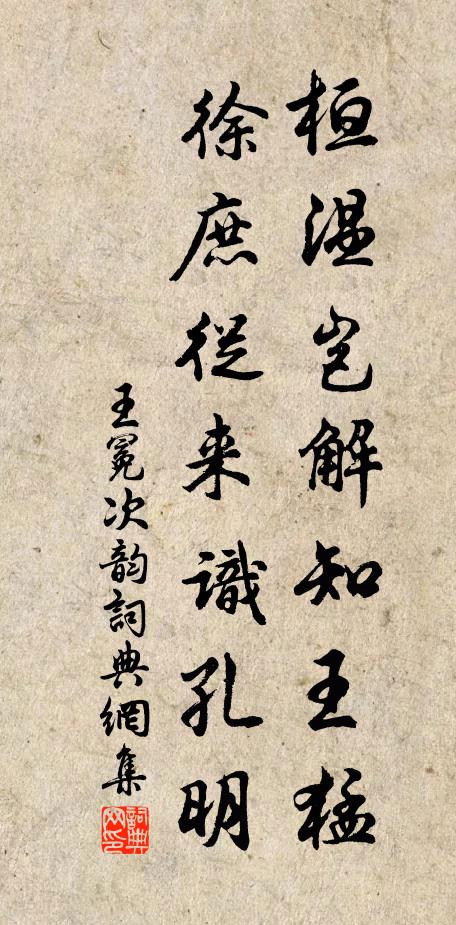 桓温岂解知王猛
徐庶從来識孔明
王冕次韵詞典網集
詞典网印